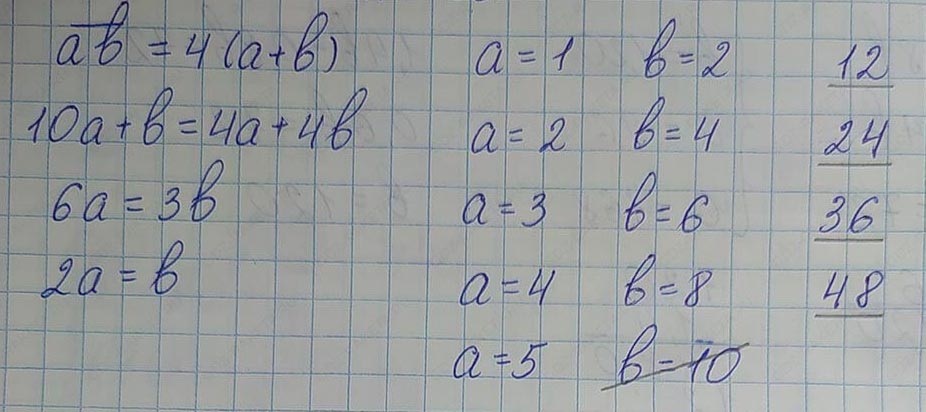 ab = 4(a+b) a = 1 b = 2 12
10a+b = 4a+4b a = 2 b = 4 24
6a = 3b a = 3 b = 6 36
2a = b a = 4 b = 8 48
a = 5 b = 10